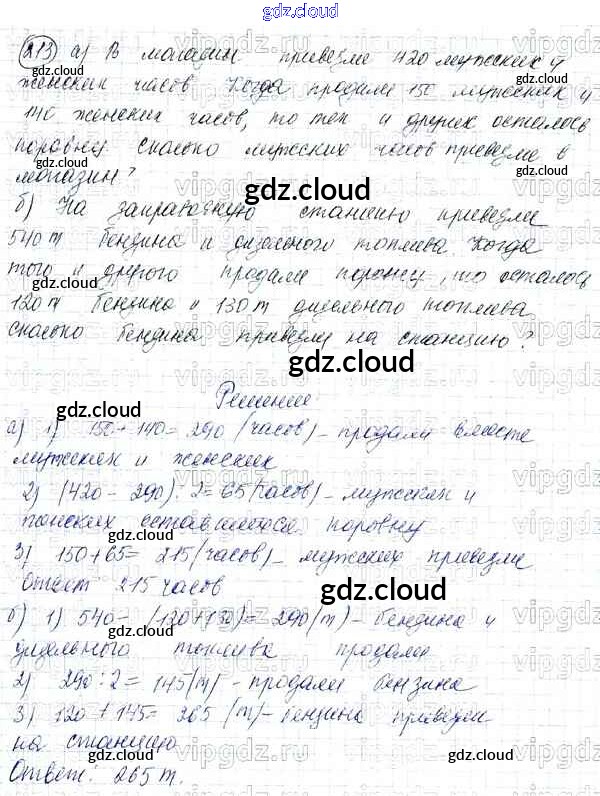 gdz.cloud
213 а) В магазин привезли 420 мужских и
женских часов Когда продали 150 мужских и
140 женских часов, то тех и других осталось
поровну Сколько мужских часов привезли в
магазин?
б) На заправочную станцию привезли
540 т бензина и дизельного топлива. Когда
того и другого продали поровну, то осталось
120 т бензина и 130 т дизельного топлива
Сколько бензина привезли на станцию?
Решение
а) 1) 150 + 140 = 290 (часов) – продали вместе
мужских и женских
2) (420 – 290) : 2 = 65 (часов) – мужских и
оставшихся поровну
3) 150 + 65 = 215 (часов) – мужских привезли
Ответ 215 часов
б) 1) 540 – (120 + 130) = 290 (т) – бензина и
дизельного топлива продали
2) 290 : 2 = 145 (т) – продали бензина
3) 120 + 145 = 265 (т) – бензина привезли
на станцию
Ответ: 265 т.